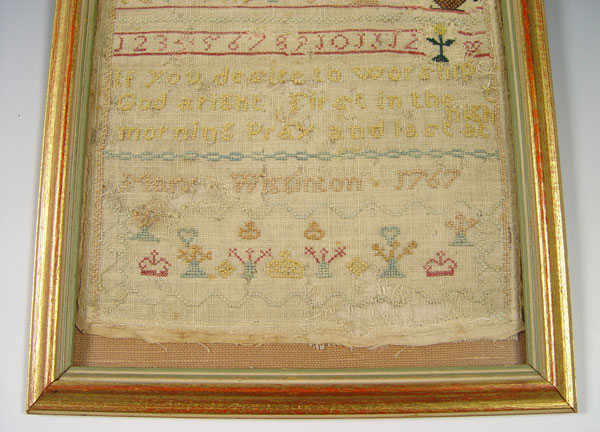 1 2 3 4 5 6 7 8 9 10 11 12
If you desire to worship
God aright First in the
morning Pray and last at
Mary 1767